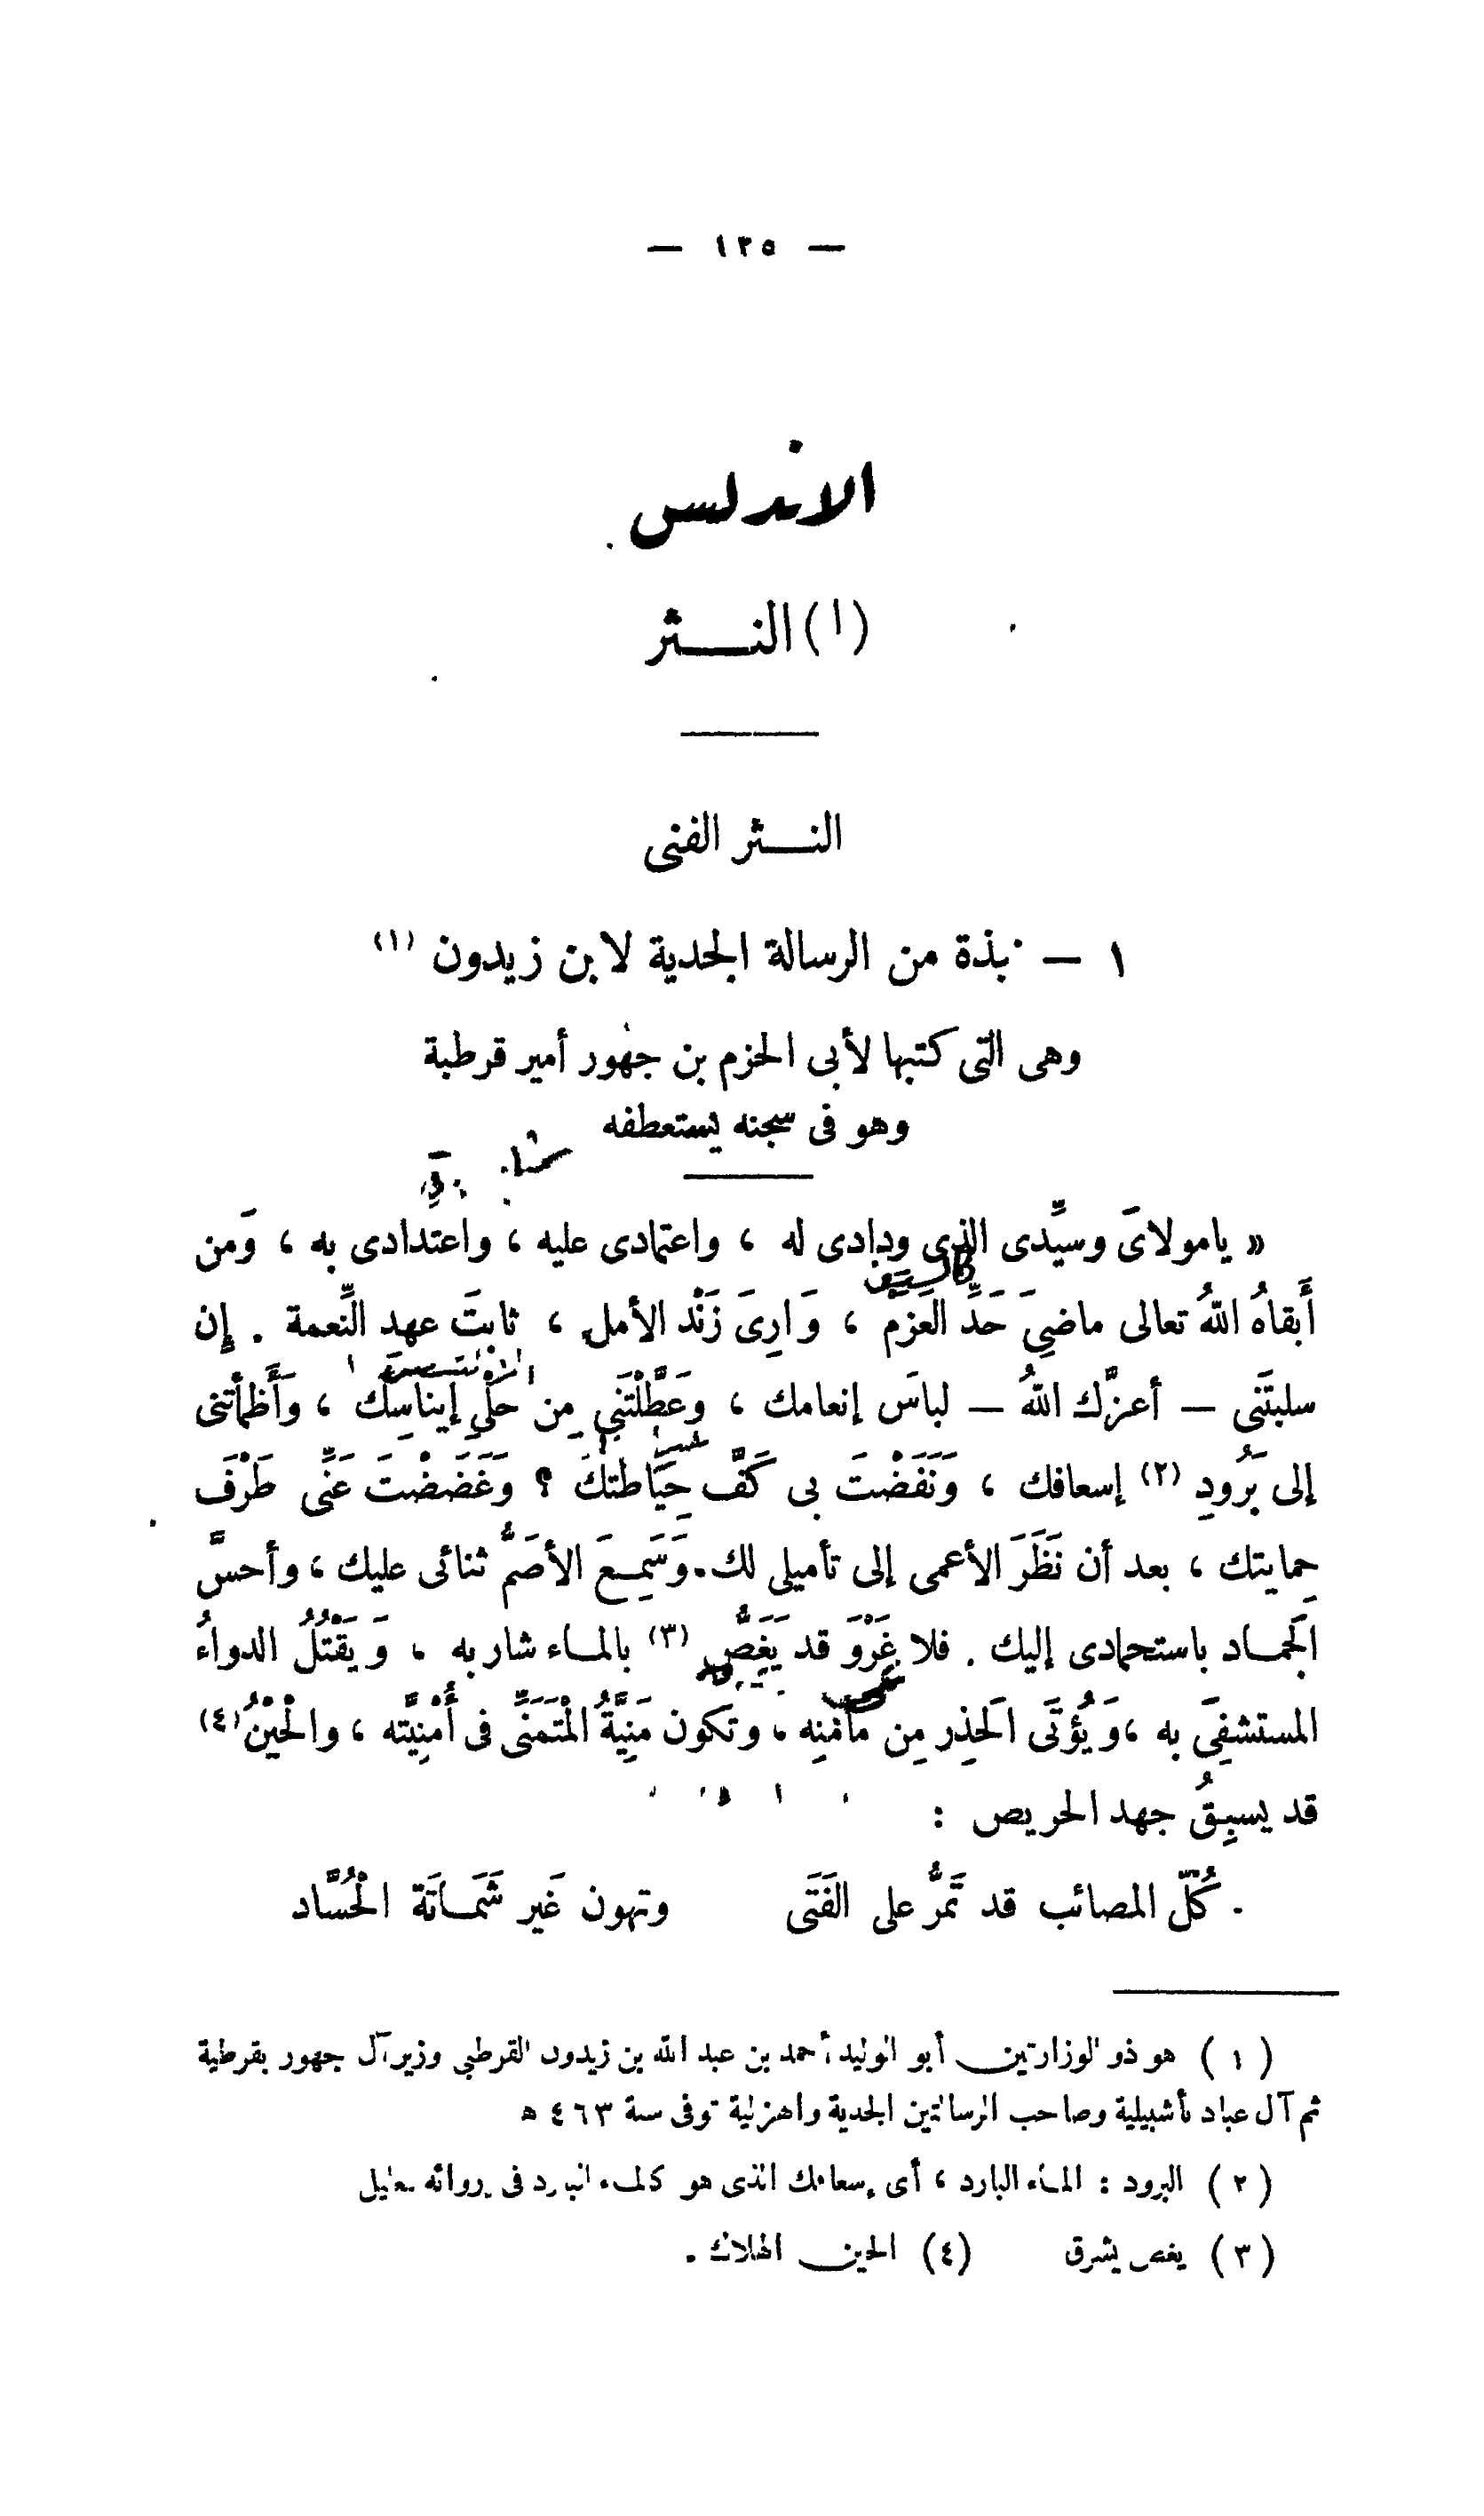 — ١٢٥ —
الاندلس
(١) النثر
النثر الفنى
١ — نبذة من الرسالة الجدية لابن زيدون (١)
وهى التى كتبها لأبى الحزم بن جهور أمير قرطبة
وهو فى سجنه يستعطفه
« يامولاىَ وسيِّدى الذى ودادى له ، واعتمادى عليه ، واعتدادى به ، وَمن
أَبقاهُ اللهُ تعالى ماضىَ حَدِّ العَزْم ، وَارِىَ زَنْد الأمل ، ثابتَ عهدِ النِّعمة . إن
سلبتَنى — أعزَّك اللهُ — لباسَ إنعامك ، وعَطَّلْتَنى مِن حَلْىِ إيناسِك ، وَأَظمأْتنى
إلى بَرُودِ (٢) إسعافك ، وَنَفَضْتَ بى كَفَّ حِيَاطتك ؟ وَغَضَضْتَ عَنِّى طَرْفَ
حِمايتك ، بعد أن نَظَرَ الأعمى إلى تأميلى لك . وَسَمِعَ الأصَمُّ ثنائى عليك ، وأحسَّ
الجَماد باستحمادى إليك . فلا غَرْوَ قد يَغَصُّ (٣) بالماء شاربه ، وَيَقْتُلُ الدواءُ
المستشفِىَ به ، وَيُؤتَى الحَذِر مِن مأمَنِه ، وتكون مَنِيَّةُ الْمتَمَنِّى فى أُمْنِيَّته ، والْحيْنُ (٤)
قد يسبِقُ جهد الحريص :
كُلّ المصائب قد تَمُرُّ على الفَتَى     وتهون غَير شَمَاتَة الْحُسَّاد
(١) هو ذو الوزارتين أبو الوليد أحمد بن عبد الله بن زيدون القرطبى وزير آل جهور بقرطبة
ثم آل عباد بأشبيلية وصاحب الرسالتين الجدية والهزلية توفى سنة ٤٦٣ ه
(٢) البرود : الماء البارد ، أى إسعافك الذى هو كالماء البارد فى إروائه
(٣) يغص يشرق     (٤) الحين الهلاك .